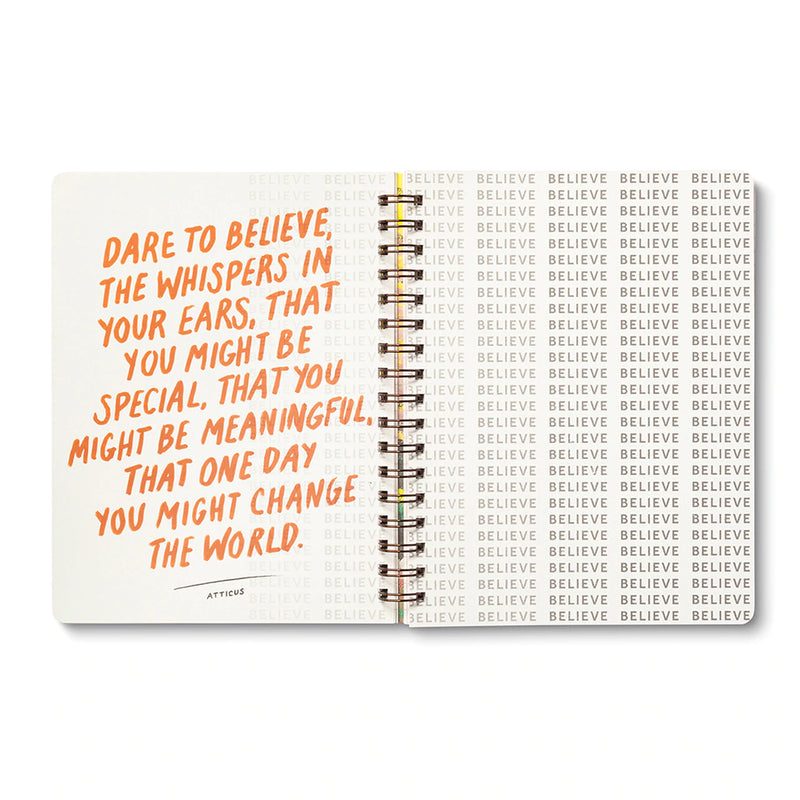 DARE TO BELIEVE,
THE WHISPERS IN
YOUR EARS, THAT
YOU MIGHT BE
SPECIAL, THAT YOU
MIGHT BE MEANINGFUL,
THAT ONE DAY
YOU MIGHT CHANGE
THE WORLD.
ATTICUS
BELIEVE BELIEVE BELIEVE BELIEVE BELIEVE
BELIEVE BELIEVE BELIEVE BELIEVE BELIEVE
BELIEVE BELIEVE BELIEVE BELIEVE BELIEVE
BELIEVE BELIEVE BELIEVE BELIEVE BELIEVE
BELIEVE BELIEVE BELIEVE BELIEVE BELIEVE
BELIEVE BELIEVE BELIEVE BELIEVE BELIEVE
BELIEVE BELIEVE BELIEVE BELIEVE BELIEVE
BELIEVE BELIEVE BELIEVE BELIEVE BELIEVE
BELIEVE BELIEVE BELIEVE BELIEVE BELIEVE
BELIEVE BELIEVE BELIEVE BELIEVE BELIEVE
BELIEVE BELIEVE BELIEVE BELIEVE BELIEVE
BELIEVE BELIEVE BELIEVE BELIEVE BELIEVE
BELIEVE BELIEVE BELIEVE BELIEVE BELIEVE
BELIEVE BELIEVE BELIEVE BELIEVE BELIEVE
BELIEVE BELIEVE BELIEVE BELIEVE BELIEVE
BELIEVE BELIEVE BELIEVE BELIEVE BELIEVE
BELIEVE BELIEVE BELIEVE BELIEVE BELIEVE
BELIEVE BELIEVE BELIEVE BELIEVE BELIEVE
BELIEVE BELIEVE BELIEVE BELIEVE BELIEVE
BELIEVE BELIEVE BELIEVE BELIEVE BELIEVE
BELIEVE BELIEVE BELIEVE BELIEVE BELIEVE
BELIEVE BELIEVE BELIEVE BELIEVE BELIEVE
BELIEVE BELIEVE BELIEVE BELIEVE BELIEVE
BELIEVE BELIEVE BELIEVE BELIEVE BELIEVE
BELIEVE BELIEVE BELIEVE BELIEVE BELIEVE
BELIEVE BELIEVE BELIEVE BELIEVE BELIEVE
BELIEVE BELIEVE BELIEVE BELIEVE BELIEVE
BELIEVE BELIEVE BELIEVE BELIEVE BELIEVE